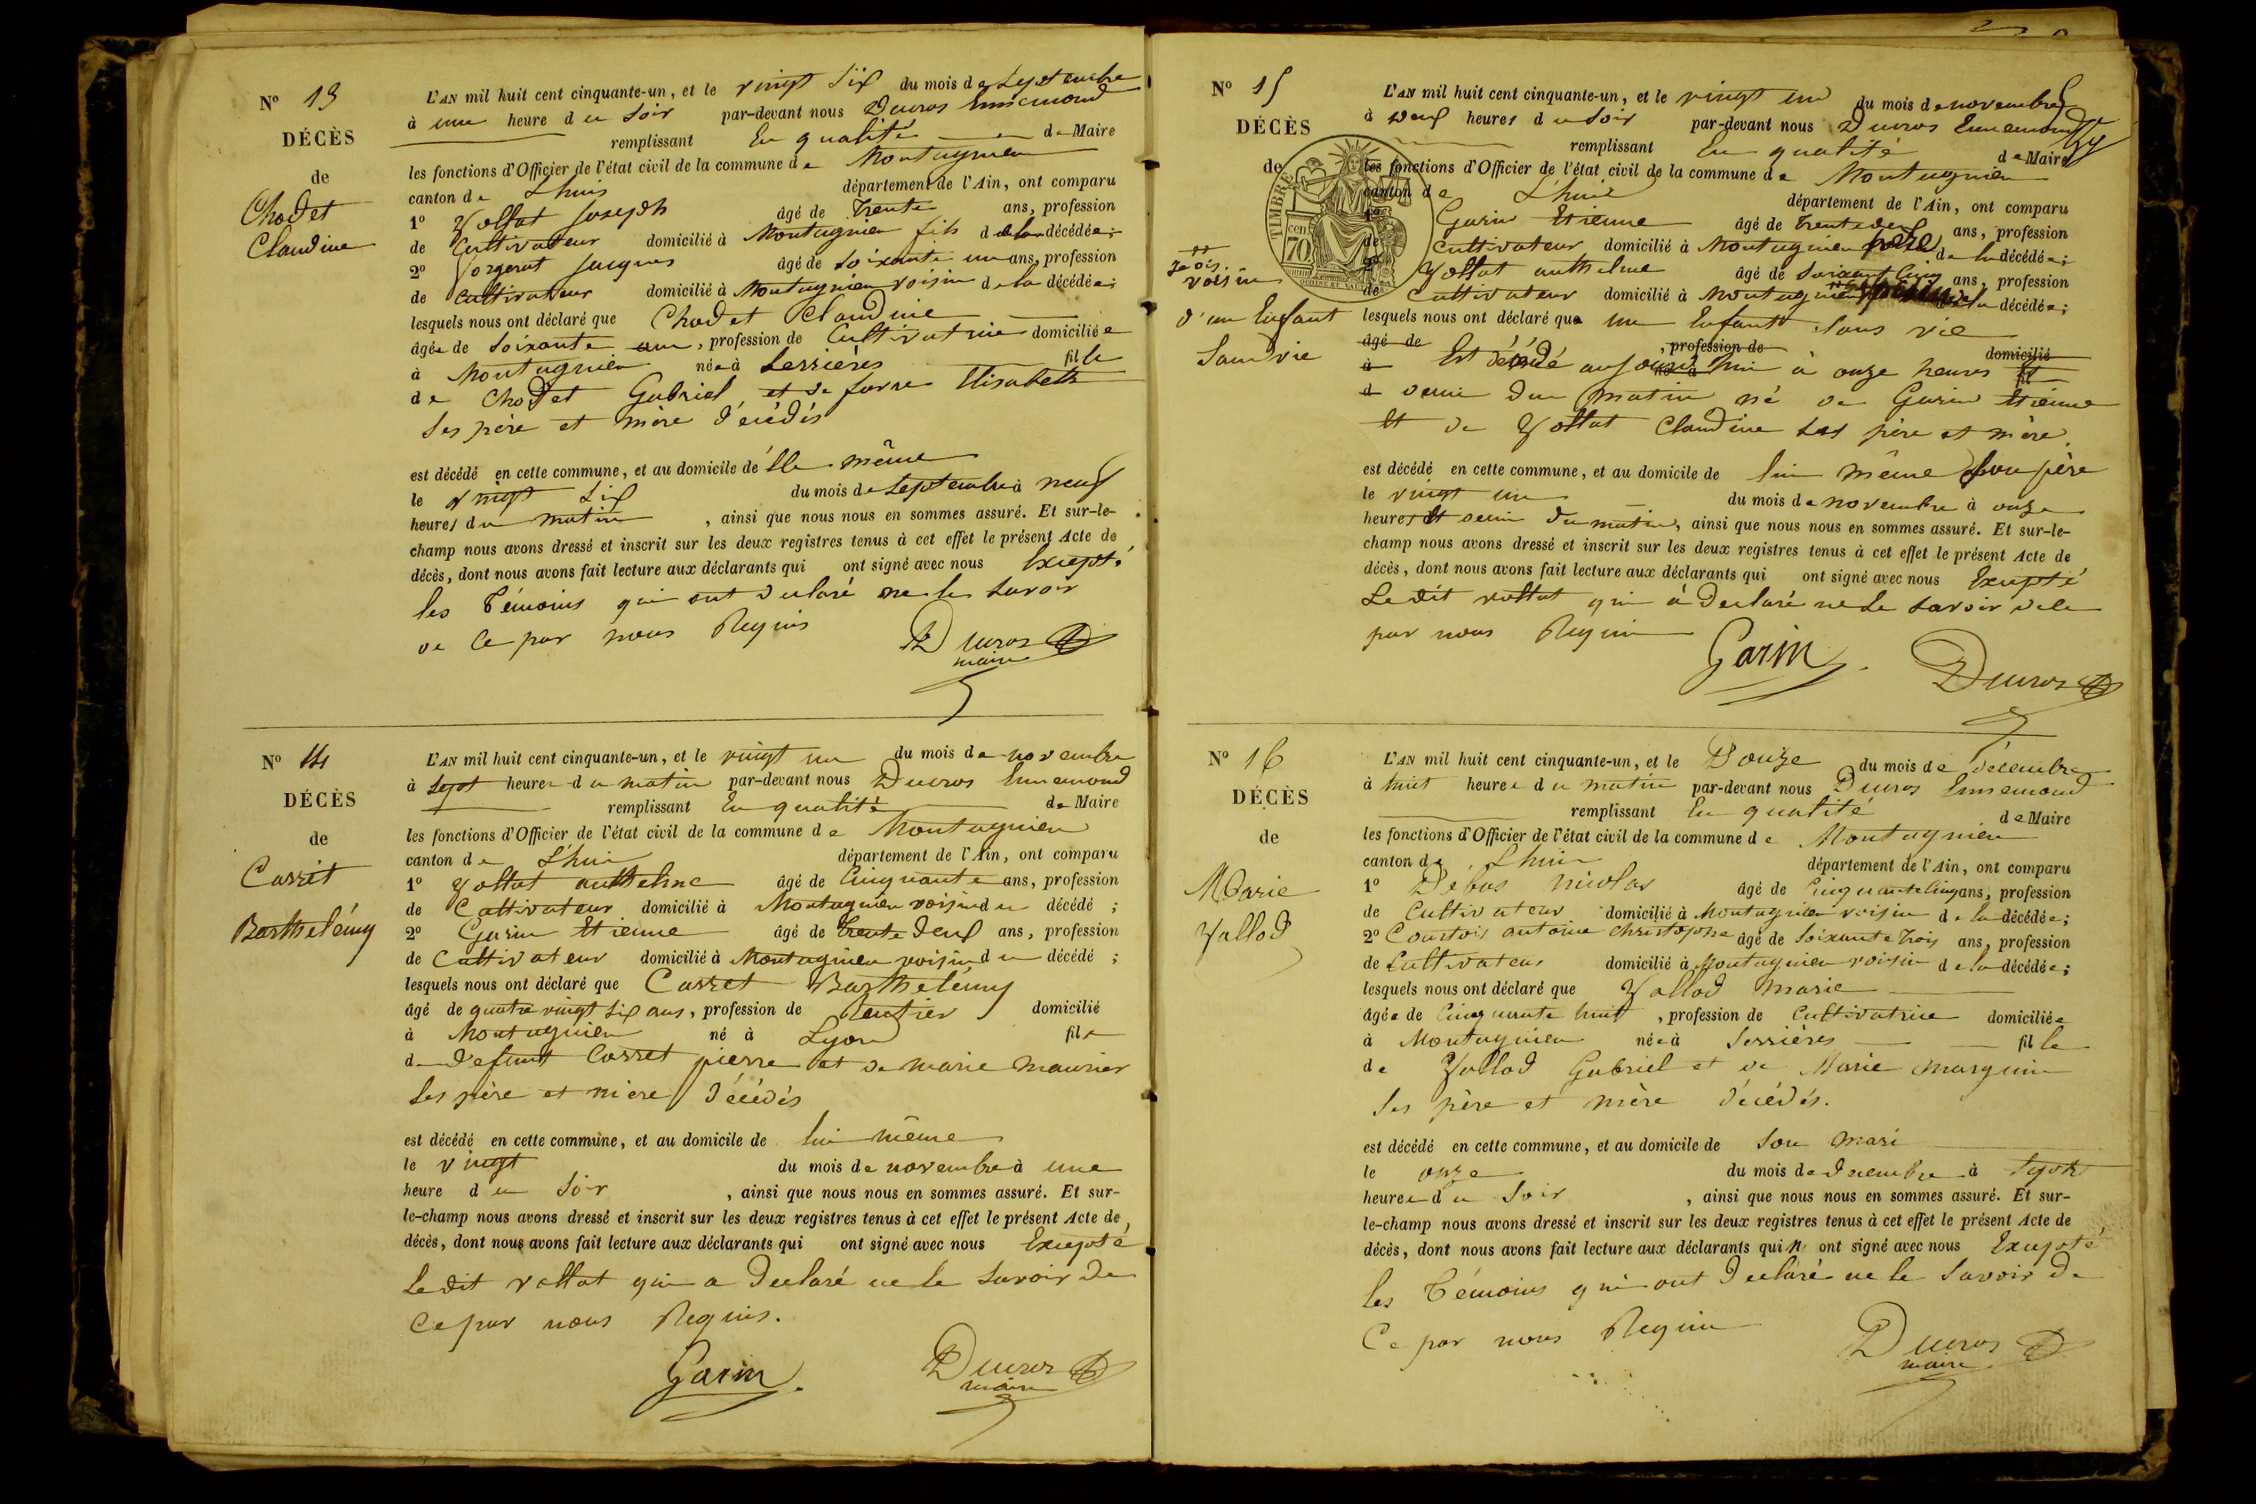 N° 13
DÉCÈS
de
Chodet
Claudine
L'AN mil huit cent cinquante-un, et le vingt Six du mois de Septembre
à une heure du Soir par-devant nous Ducros Ennemond
remplissant En qualité de Maire
les fonctions d'Officier de l'état civil de la commune de Montagnieu
canton de Lhuis département de l'Ain, ont comparu
1° Vollat Joseph âgé de Trente ans, profession
de Cultivateur domicilié à Montagnieu fils de la décédée;
2° Vorgerat Jacques âgé de Soixante un ans, profession
de Cultivateur domicilié à Montagnieu voisin de la décédée;
lesquels nous ont déclaré que Chodet Claudine
âgée de Soixante, profession de Cultivatrice domiciliée
à Montagnieu née à Serrières fille
de Chodet Gabriel et de Elisabeth
Ses père et mère décédés
est décédé en cette commune, et au domicile d'Elle même
le vingt Six du mois de Septembre à neuf
heures du matin, ainsi que nous nous en sommes assuré. Et sur-le-
champ nous avons dressé et inscrit sur les deux registres tenus à cet effet le présent Acte de
décès, dont nous avons fait lecture aux déclarants qui ont signé avec nous Excepté
les Témoins qui ont declaré ne le Savoir
de Ce par nous Requis
Ducros
maire
N° 14
DÉCÈS
de
Carret
Barthelémy
L'AN mil huit cent cinquante-un, et le vingt un du mois de novembre
à Sept heures du matin par-devant nous Ducros Ennemond
remplissant En qualité de Maire
les fonctions d'Officier de l'état civil de la commune de Montagnieu
canton de Lhuis département de l'Ain, ont comparu
1° Vollat anthelme âgé de Cinquante ans, profession
de Cultivateur domicilié à Montagnieu voisin du décédé;
2° Garin Etienne âgé de Trente Deux ans, profession
de Cultivateur domicilié à Montagnieu voisin du décédé;
lesquels nous ont déclaré que Carret Barthelémy
âgé de quatre vingt Six ans, profession de Rentier domicilié
à Montagnieu né à Lyon fils
de Defunt Carret pierre et de marie maurier
Ses père et mère Décédés
est décédé en cette commune, et au domicile de lui même
le vingt du mois de novembre à une
heure du Soir, ainsi que nous nous en sommes assuré. Et sur-
le-champ nous avons dressé et inscrit sur les deux registres tenus à cet effet le présent Acte de
décès, dont nous avons fait lecture aux déclarants qui ont signé avec nous Excepté
Le dit vollat qui a Declaré ne le Savoir de
Ce par nous Requis.
Garin
Ducros
maire
N° 15
DÉCÈS
de
voisin
d'un Enfant
Sans vie
TIMBRE
70 cen
L'AN mil huit cent cinquante-un, et le vingt un du mois de novembre
à Deux heures du Soir par-devant nous Ducros Ennemond
remplissant En qualité de Maire
les fonctions d'Officier de l'état civil de la commune de Montagnieu
canton de Lhuis département de l'Ain, ont comparu
1° Garin Etienne âgé de trente deux ans, profession
de Cultivateur domicilié à Montagnieu père de la décédée;
2° Vollat anthelme âgé de Soixante Cinq ans, profession
de Cultivateur domicilié à Montagnieu de la décédée;
lesquels nous ont déclaré que un Enfant Sans vie
âgé de, profession de domicilié
à Est décédé aujourd'hui à onze heures fil
et demie Du matin né de Garin Etienne
Et de Vollat Claudine Ses père et mère.
est décédé en cette commune, et au domicile de lui même Son père
le vingt un du mois de novembre à onze
heures Et demie du matin, ainsi que nous nous en sommes assuré. Et sur-le-
champ nous avons dressé et inscrit sur les deux registres tenus à cet effet le présent Acte de
décès, dont nous avons fait lecture aux déclarants qui ont signé avec nous Excepté
Le dit vollat qui à Declaré ne le Savoir de Ce
par nous Requis
Garin
Ducros
N° 16
DÉCÈS
de
Marie
Vallod
L'AN mil huit cent cinquante-un, et le Douze du mois de décembre
à huit heures du matin par-devant nous Ducros Ennemond
remplissant En qualité de Maire
les fonctions d'Officier de l'état civil de la commune de Montagnieu
canton de Lhuis département de l'Ain, ont comparu
1° Débos nicolas âgé de Cinquante Cinq ans, profession
de Cultivateur domicilié à Montagnieu voisin de la décédée;
2° Courtois antoine christophe âgé de Soixante trois ans, profession
de Cultivateur domicilié à Montagnieu voisin de la décédée;
lesquels nous ont déclaré que Vallod Marie
âgée de Cinquante huit, profession de Cultivatrice domiciliée
à Montagnieu née à Serrières fille
de Vallod Gabriel et de Marie marguin
Ses père et mère Décédés.
est décédé en cette commune, et au domicile de Son Mari
le onze du mois de Decembre à Sept
heures du Soir, ainsi que nous nous en sommes assuré. Et sur-
le-champ nous avons dressé et inscrit sur les deux registres tenus à cet effet le présent Acte de
décès, dont nous avons fait lecture aux déclarants qui n ont signé avec nous Excepté
les Témoins qui ont Declaré ne le Savoir de
Ce par nous Requis
Ducros
maire